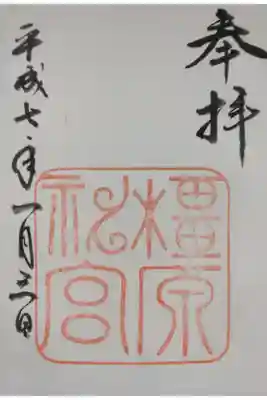 奉拝
橿原
神宮
平成七年一月三日